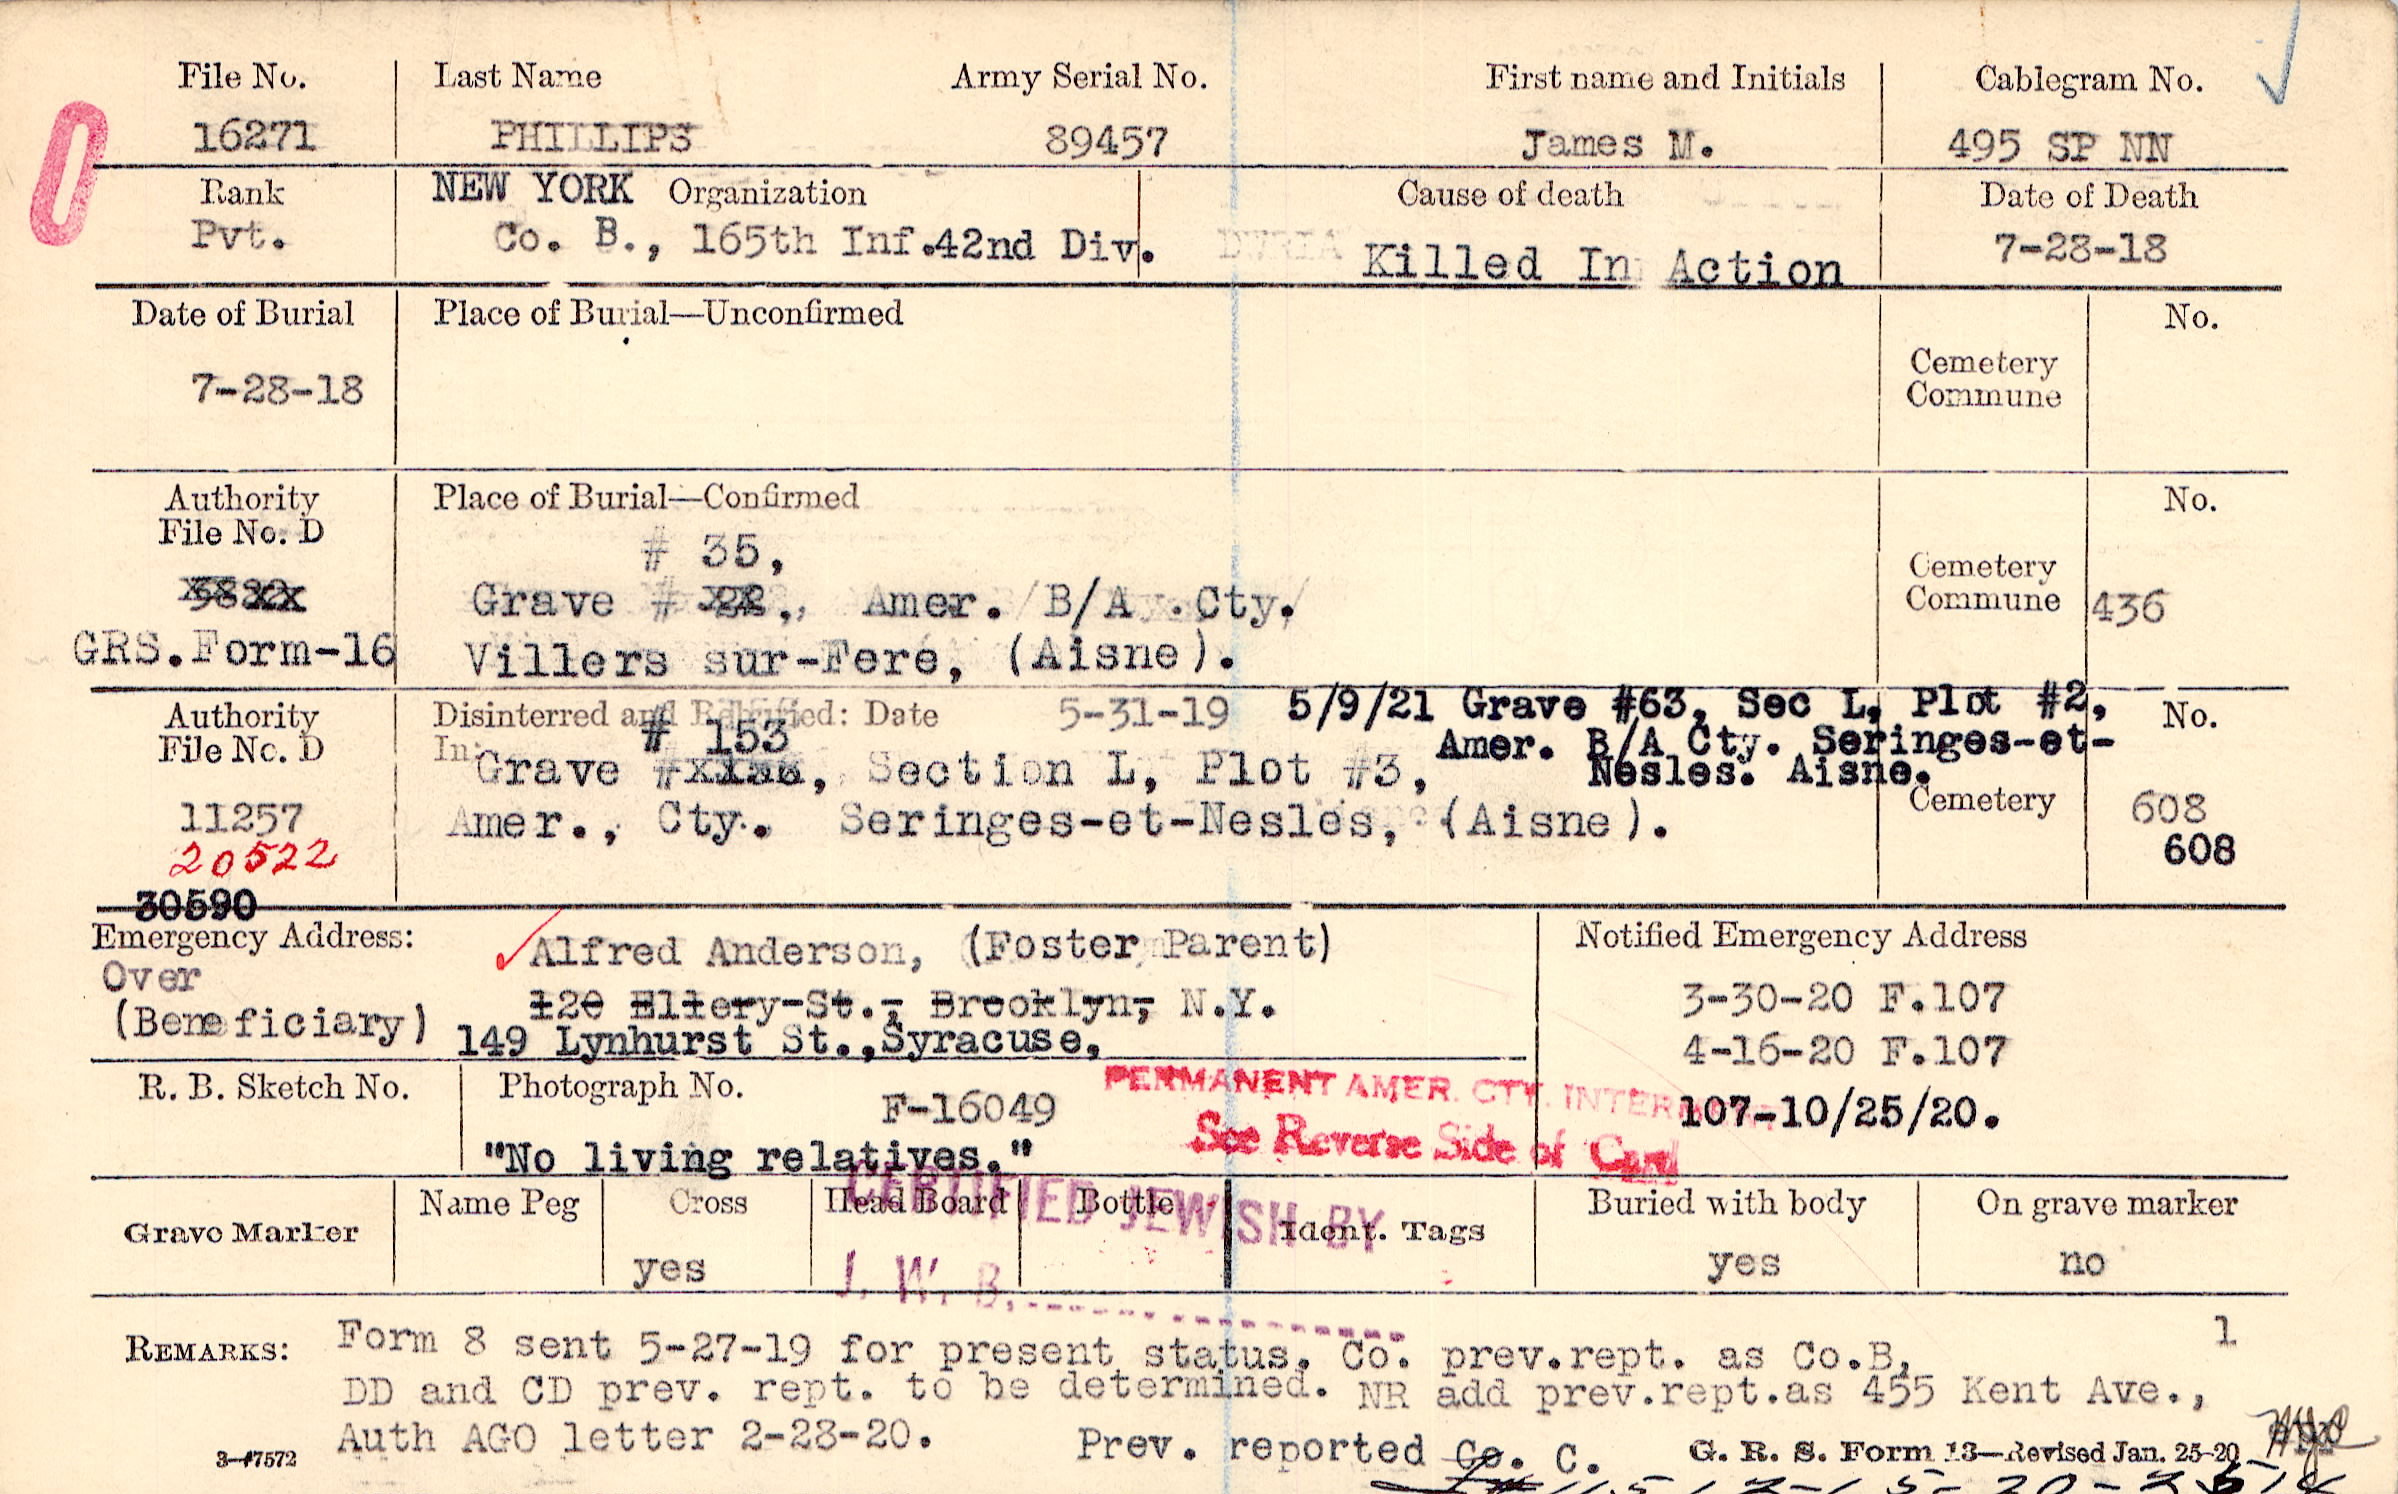 File No. Last Name Army Serial No. First name and Initials Cablegram No.
16271 PHILLIPS 89457 James M. 495 SP NN
Rank NEW YORK Organization Cause of death Date of Death
Pvt. Co. B., 165th Inf.42nd Div. Killed In Action 7-28-18
Date of Burial Place of Burial—Unconfirmed No.
7-28-18 Cemetery
Commune
Authority Place of Burial—Confirmed No.
File No. D
# 35,
Grave # , Amer. B/A .Cty. Cemetery
Commune 436
GRS.Form-16 Villers sur-Fere, (Aisne).
Authority Disinterred and Reburied: Date 5-31-19 5/9/21 Grave #63, Sec L, Plot #2, No.
File No. D In: # 153 Amer. B/A Cty. Seringes-et-
Nesles. Aisne.
Grave # , Section L, Plot #3,
11257 Amer., Cty. Seringes-et-Nesles, (Aisne). Cemetery 608
20522 608
30590
Emergency Address: Alfred Anderson, (Foster Parent) Notified Emergency Address
Over
(Beneficiary) 120 Ellery-St., Brooklyn, N.Y. 3-30-20 F.107
149 Lynhurst St.,Syracuse, 4-16-20 F.107
R. B. Sketch No. Photograph No. F-16049 PERMANENT AMER. CTY. 107-10/25/20.
"No living relatives." See Reverse Side of Card
CERTIFIED JEWISH BY
J. W. B.
Grave Marker Name Peg Cross Head Board Bottle Ident. Tags Buried with body On grave marker
yes yes no
1
REMARKS: Form 8 sent 5-27-19 for present status. Co. prev.rept. as Co.B,
DD and CD prev. rept. to be determined. NR add prev.rept.as 455 Kent Ave.,
Auth AGO letter 2-28-20. Prev. reported Co. C.
3-7572 G. R. S. Form 13—Revised Jan. 25-20